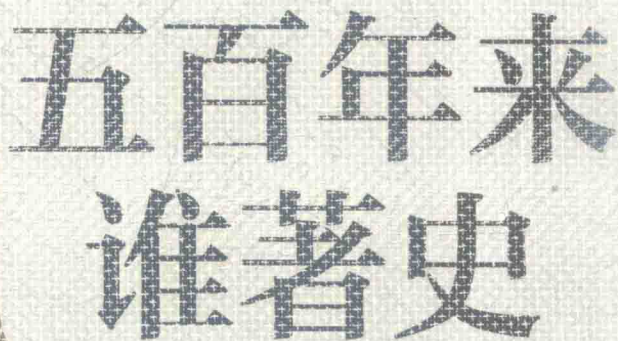 五百年来
谁著史